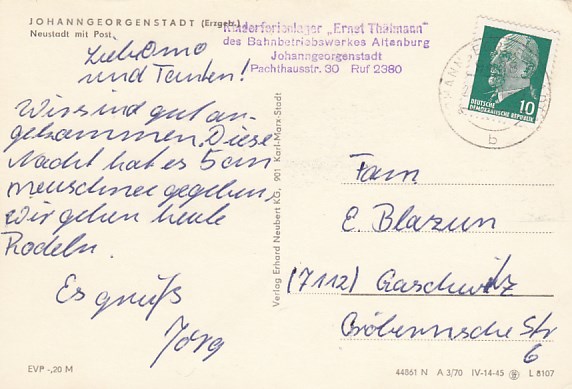 JOHANNGEORGENSTADT (Erzgeb.)
Neustadt mit Post
Kinderferienlager „Ernst Thälmann"
des Bahnbetriebswerkes Altenburg
Johanngeorgenstadt
Pachthausstr. 30 Ruf 2380
10
DEUTSCHE
DEMOKRATISCHE REPUBLIK
b
Liebe Omo
und Tanten!
Wir sind gut an-
gekommen. Diese
Nacht hat es 5 cm
neuschnee gegeben,
wir gehen heute
Rodeln.
Es grüßt
Jörg
Verlag Erhard Neubert KG, 901 Karl-Marx-Stadt
Fam.
E. Blazun
(7112) Gaschwitz
Cröbernsche Str
6
EVP -,20 M
44861 N A 3/70 IV-14-45 L 8107